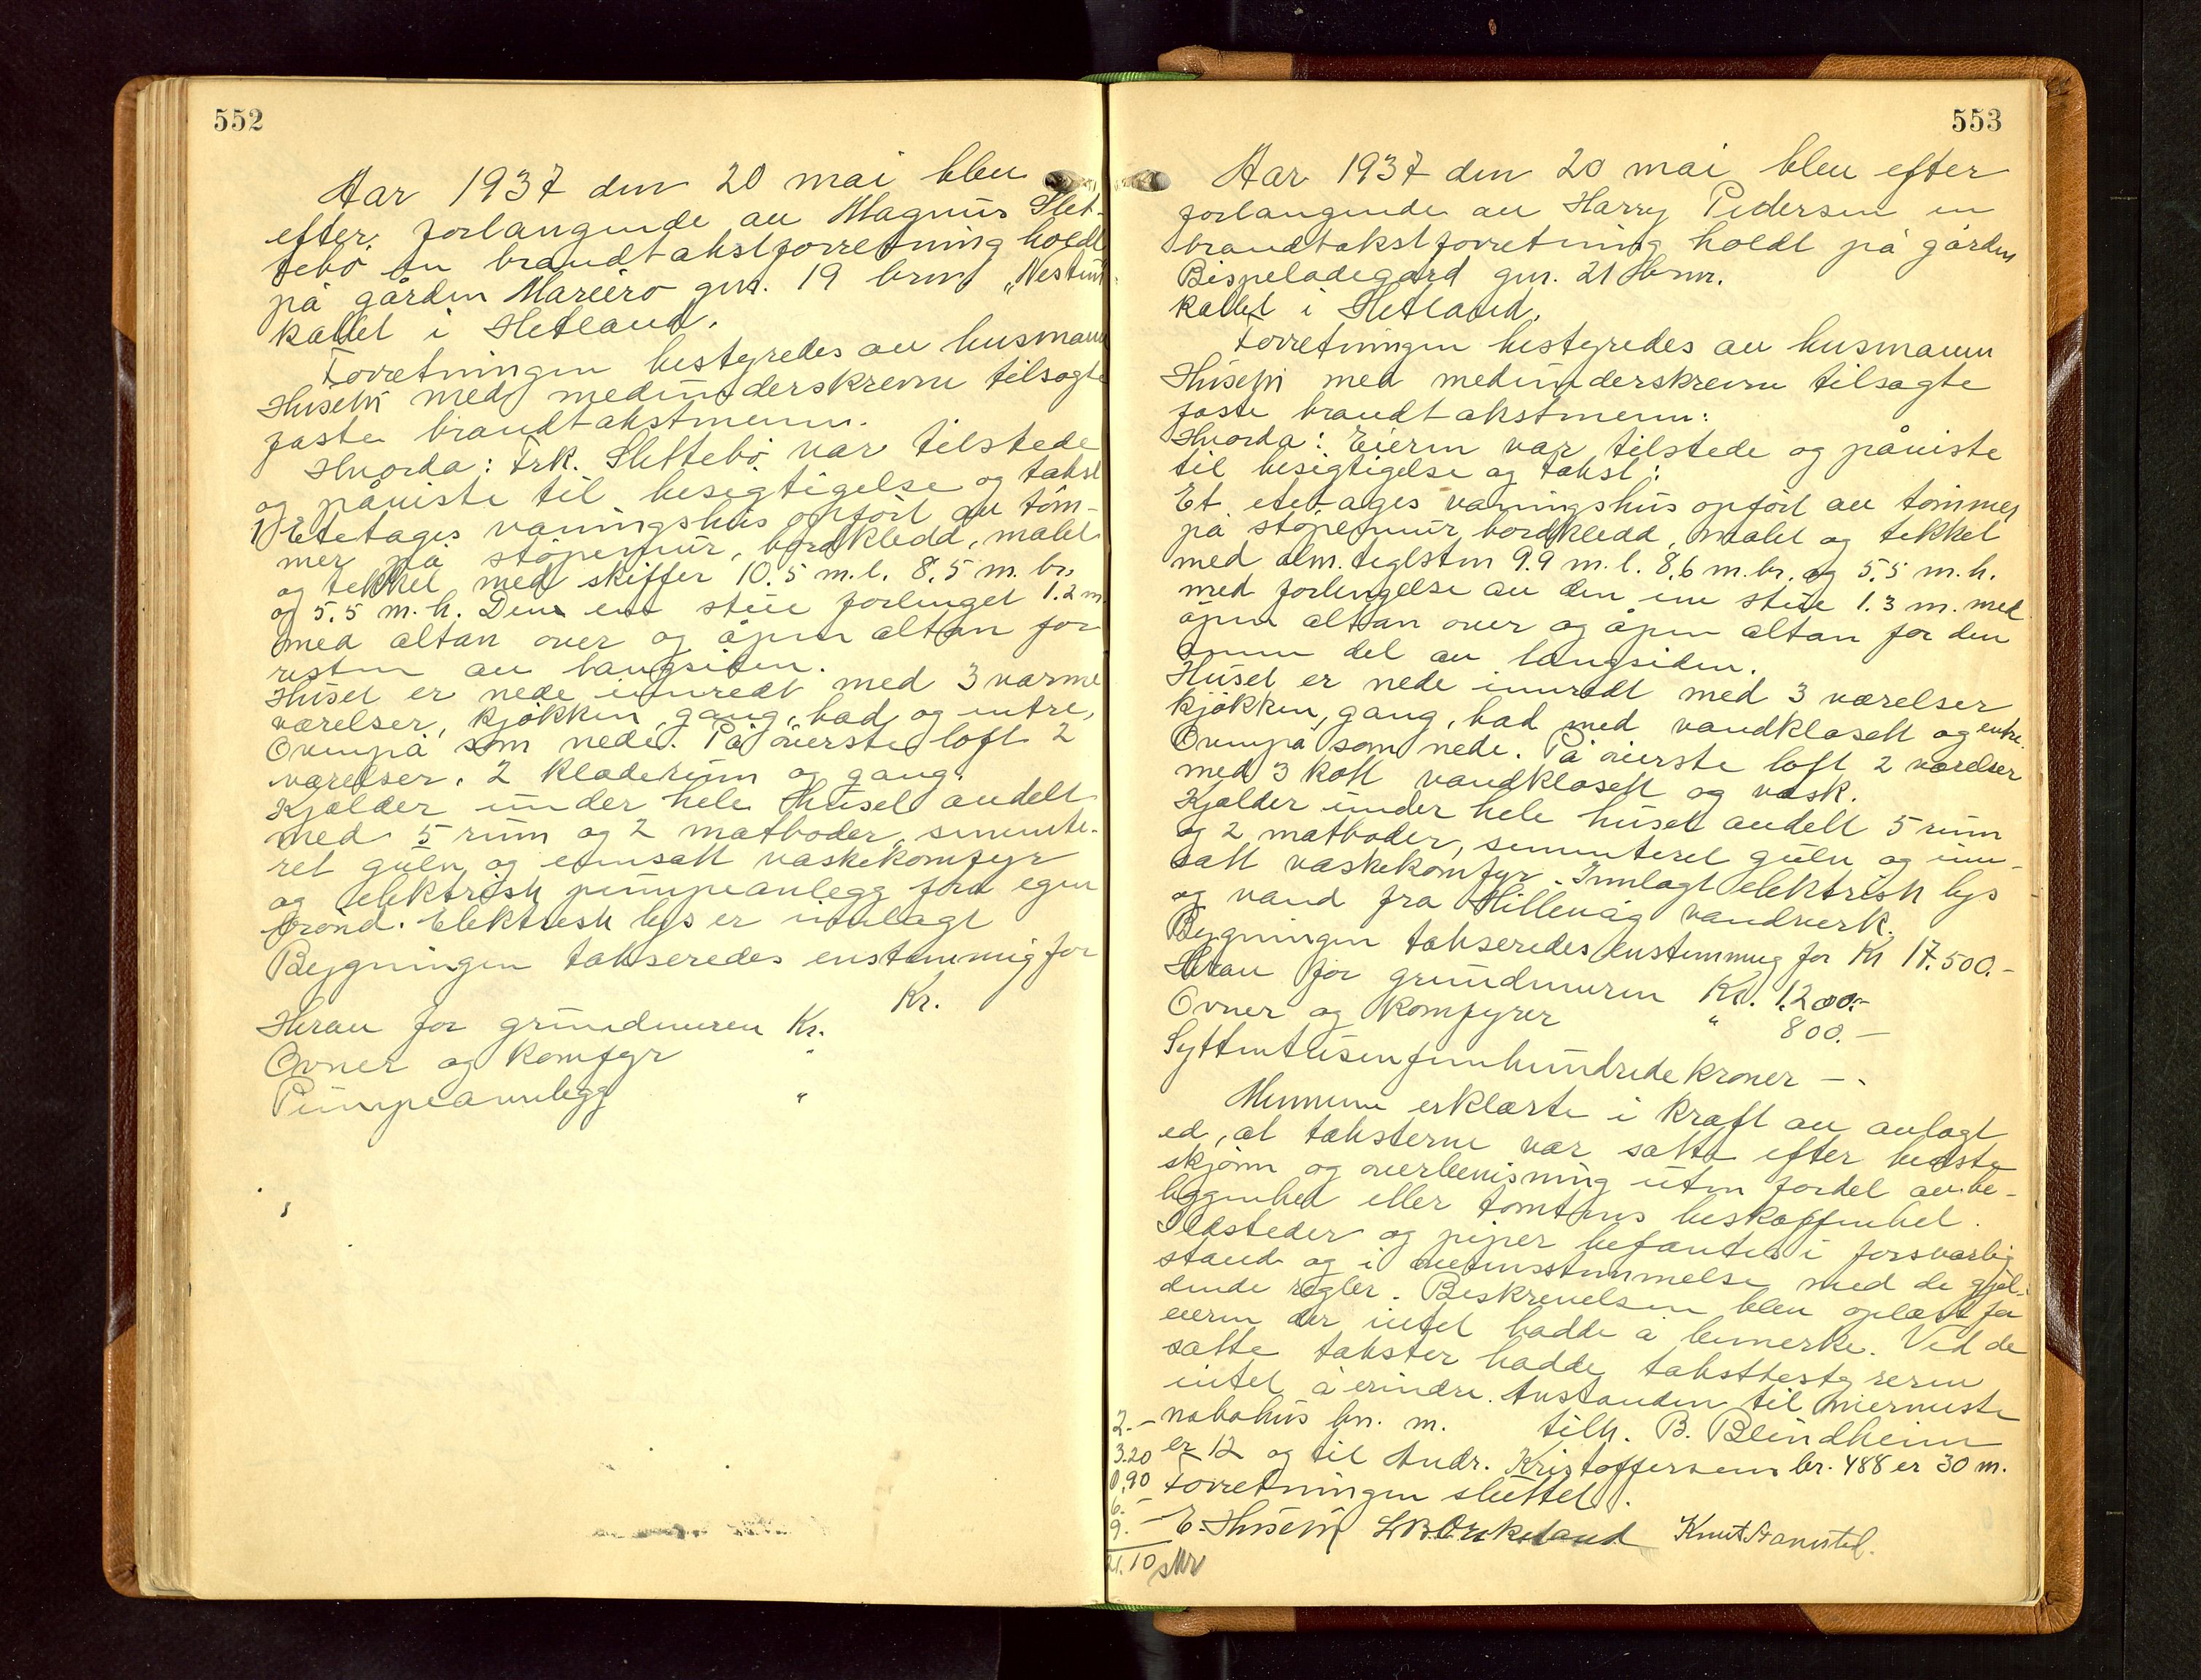 552
Aar 1937 den 20 mai blev
efter forlangende av Magnus Slet-
tebø en brandtakstforretning holdt
på gården Mariero gnr. 19 brnr „Nestun"
kallet i Hetland.
Forretningen bestyredes av husmann
Husebø med medunderskrevne tilsagte
faste brandtakstmenn.
Hvorda: Frk. Slettebø var tilstede
og påviste til besigtigelse og takst
1) Etetages våningshus opført av tøm-
mer på støpemur, bordkledd, malet
og tekket med skiffer 10.5 m.l. 8.5 m. br.
og 5.5 m.h. Den ene stue forlenget 1.2 m
med altan over og åpen altan for
resten av langsiden.
Huset er nede innredt med 3 varme
værelser, kjøkken, gang, bad og entre,
Ovenpå som nede. På øverste loft 2
værelser, 2 klæderum og gang.
Kjælder under hele huset avdelt
med 5 rum og 2 matboder, semente-
ret gulv og ennsatt vaskekomfyr
og elektrisk pumpeanlegg fra egen
brønd. Elektrisk lys er innlagt
Bygningen takseredes enstemmig for
Kr.
Herav for grundmuren Kr.
Ovner og komfyr "
Pumpeannlegg "
553
Aar 1937 den 20 mai blev efter
forlangende av Harry Pedersen en
brandtakstforretning holdt på gården
Bispeladegård gnr. 21 brnr.
kallet i Hetland.
Forretningen bestyredes av husmann
Husebø med medunderskrevne tilsagte
faste brandtakstmenn:
Hvorda: Eieren var tilstede og påviste
til besigtigelse og takst:
Et etetages våningshus opført av tømmer
på støpemur bordkledd, malet og tekket
med alm. teglsten 9.9 m.l. 8.6 m.br. og 5.5 m.h.
med forlengelse av den ene stue 1.3 m. med
åpen altan over og åpen altan for den
annen del av langsiden.
Huset er nede innredt med 3 værelser
kjøkken, gang, bad med vandklosett og entre.
Ovenpå som nede. På øverste loft 2 værelser
med 3 kott vandklosett og vask.
Kjælder under hele huset avdelt 5 rum
og 2 matboder, sementeret gulv og inn-
satt vaskekomfyr. Innlagt elektrisk lys
og vand fra Hillevåg vandverk.
Bygningen takseredes enstemmig for Kr 17.500.-
Herav for grundmuren Kr. 1.200.-
Ovner og komfyrer " 800.-
Syttentusenfemhundrede kroner —
Mennene erklærte i kraft av avlagt
ed, at taksterne var satte efter bedste
skjønn og overbevisning uten fordel av be-
liggenhed eller tomtens beskaffenhet.
Ildsteder og piper befantes i forsvarlig
stand og i overensstemmelse med de gjel-
dende regler. Beskrivelsen blev oplæst for
eieren der intet hadde å bemerke. Ved de
satte takster hadde takstbestyreren
intet å erindre. Avstanden til nærmeste
2.- nabohus bn. m. tilh. B. Blindheim
3.20 er 12 og til Andr. Kristoffersens br. 488 er 30 m.
0,90 Forretningen sluttet.
6.-
9.- E. Husebø
21.10